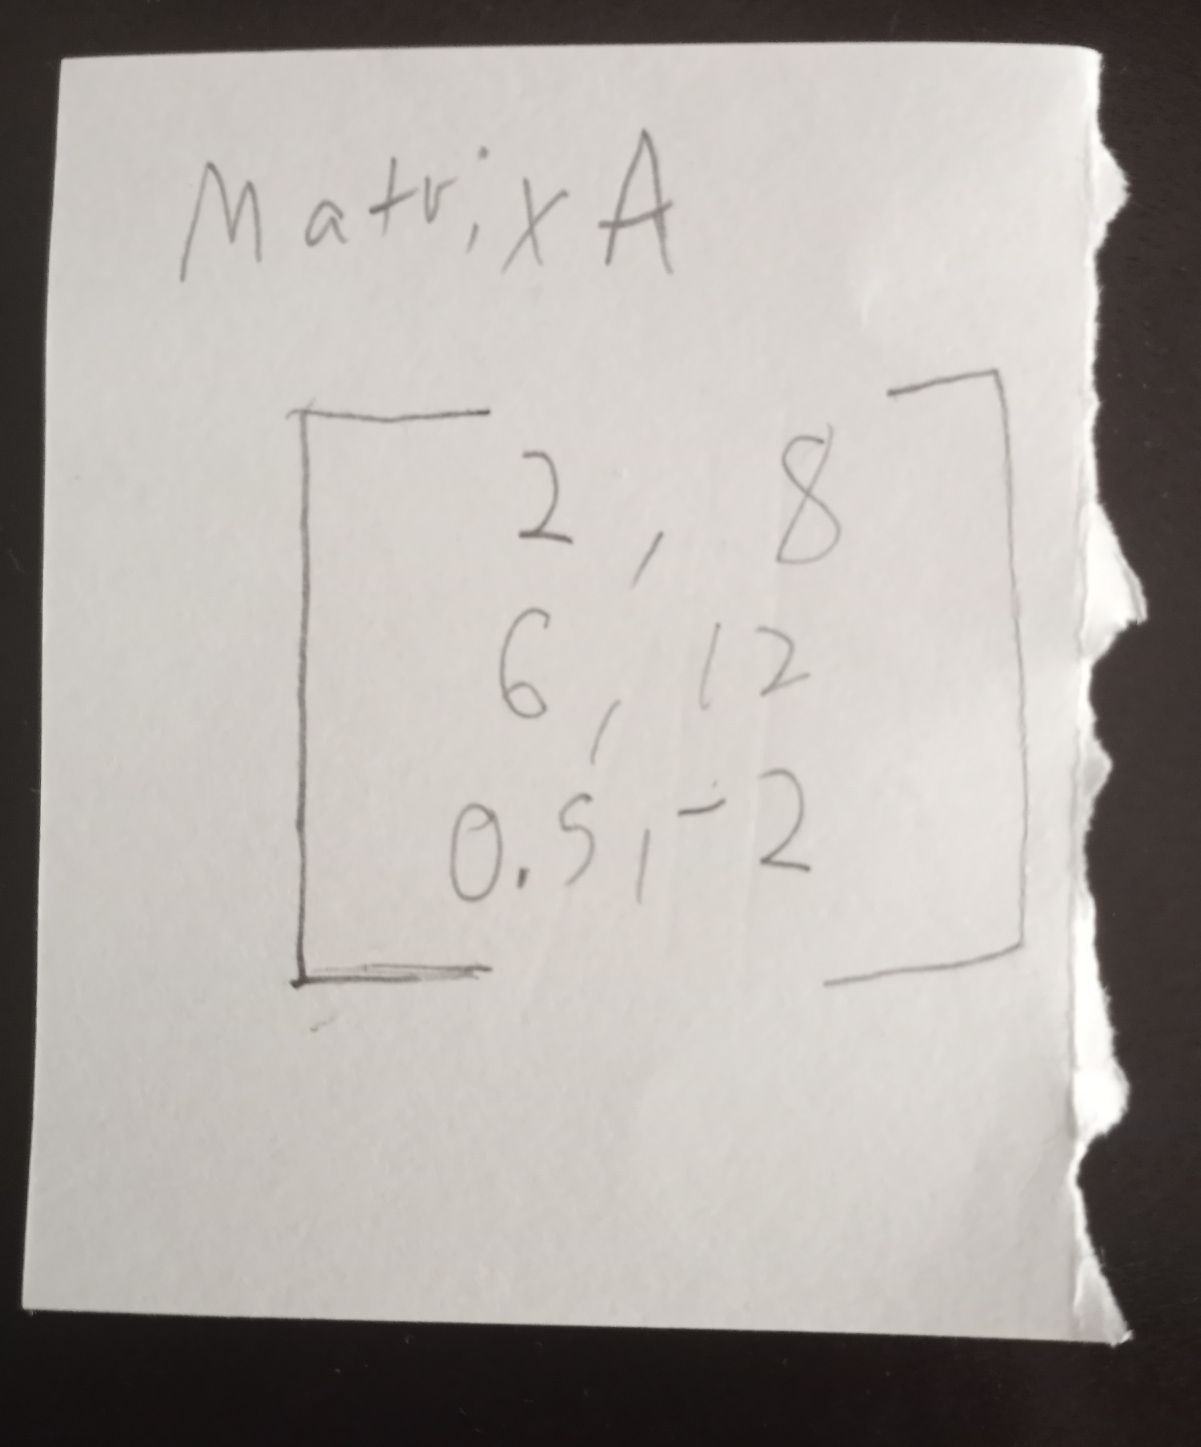 Matrix A
2, 8
6, 12
0.5, -2